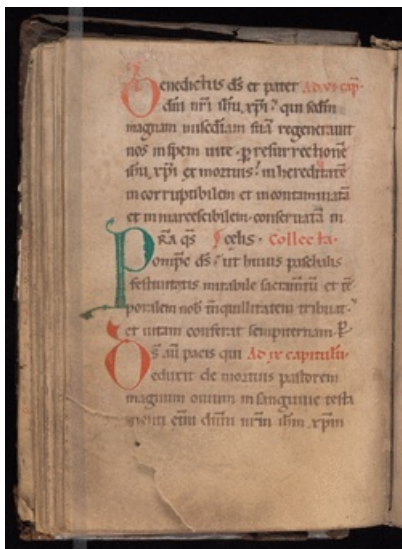 Benedictus ds̄ et pater Ad vi cap̄.
dn̄i nr̄i ih̄u xp̄i. qui scd̄m
magnam mis̄c̄diam suā regenerauit
nos in spem uite. ꝑ resurrectionē
ih̄u xp̄i ex mortuis. in hereditatē
incorruptibilem et incontaminatā
et inmarcescibilem. conseruatā in
celis. Collecta.
Pr̄a qs̄
om̄pē ds̄. ut huius paschalis
festiuitatis mirabile sacramtū et tē
poralem nob̄ tn̄quillitatem tribuat.
et uitam conferat sempiternam. P̄
Ds̄ aū pacis qui Ad ix capitulū.
eduxit de mortuis pastorem
magnum ouium in sanguine testa
menti et̄ni dn̄m nr̄m ih̄m xp̄m